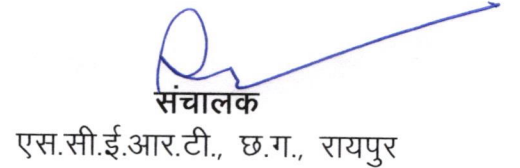 संचालक
एस.सी.ई.आर.टी., छ.ग., रायपुर